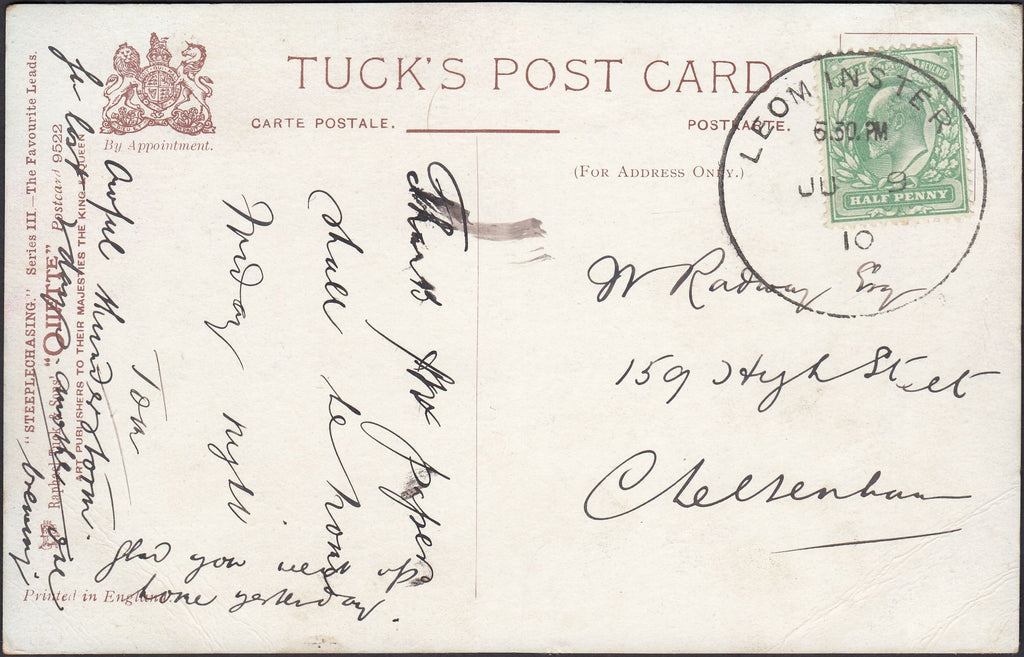 TUCK'S POST CARD
CARTE POSTALE.
POSTKARTE.
By Appointment.
(FOR ADDRESS ONLY.)
LEOMINSTER
6.30. PM
JU 9
10
REVENUE
HALF PENNY
W Radway Esq
159 High Street
Cheltenham
Thanks for paper
shall be home
Friday night.
Tom
Glad you went up
home yesterday.
Awful thunderstorm.
for last days. another one
brewing.
"STEEPLECHASING." Series III.—The Favourite Leads.
Raphael Tuck & Sons' "OILETTE" Postcard 9522
ART PUBLISHERS TO THEIR MAJESTIES THE KING & QUEEN
Printed in England.